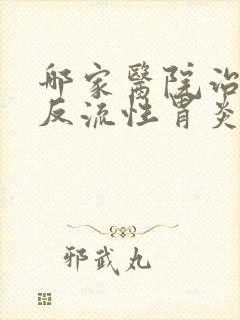 哪家醫院治
反流性胃炎
邪武丸